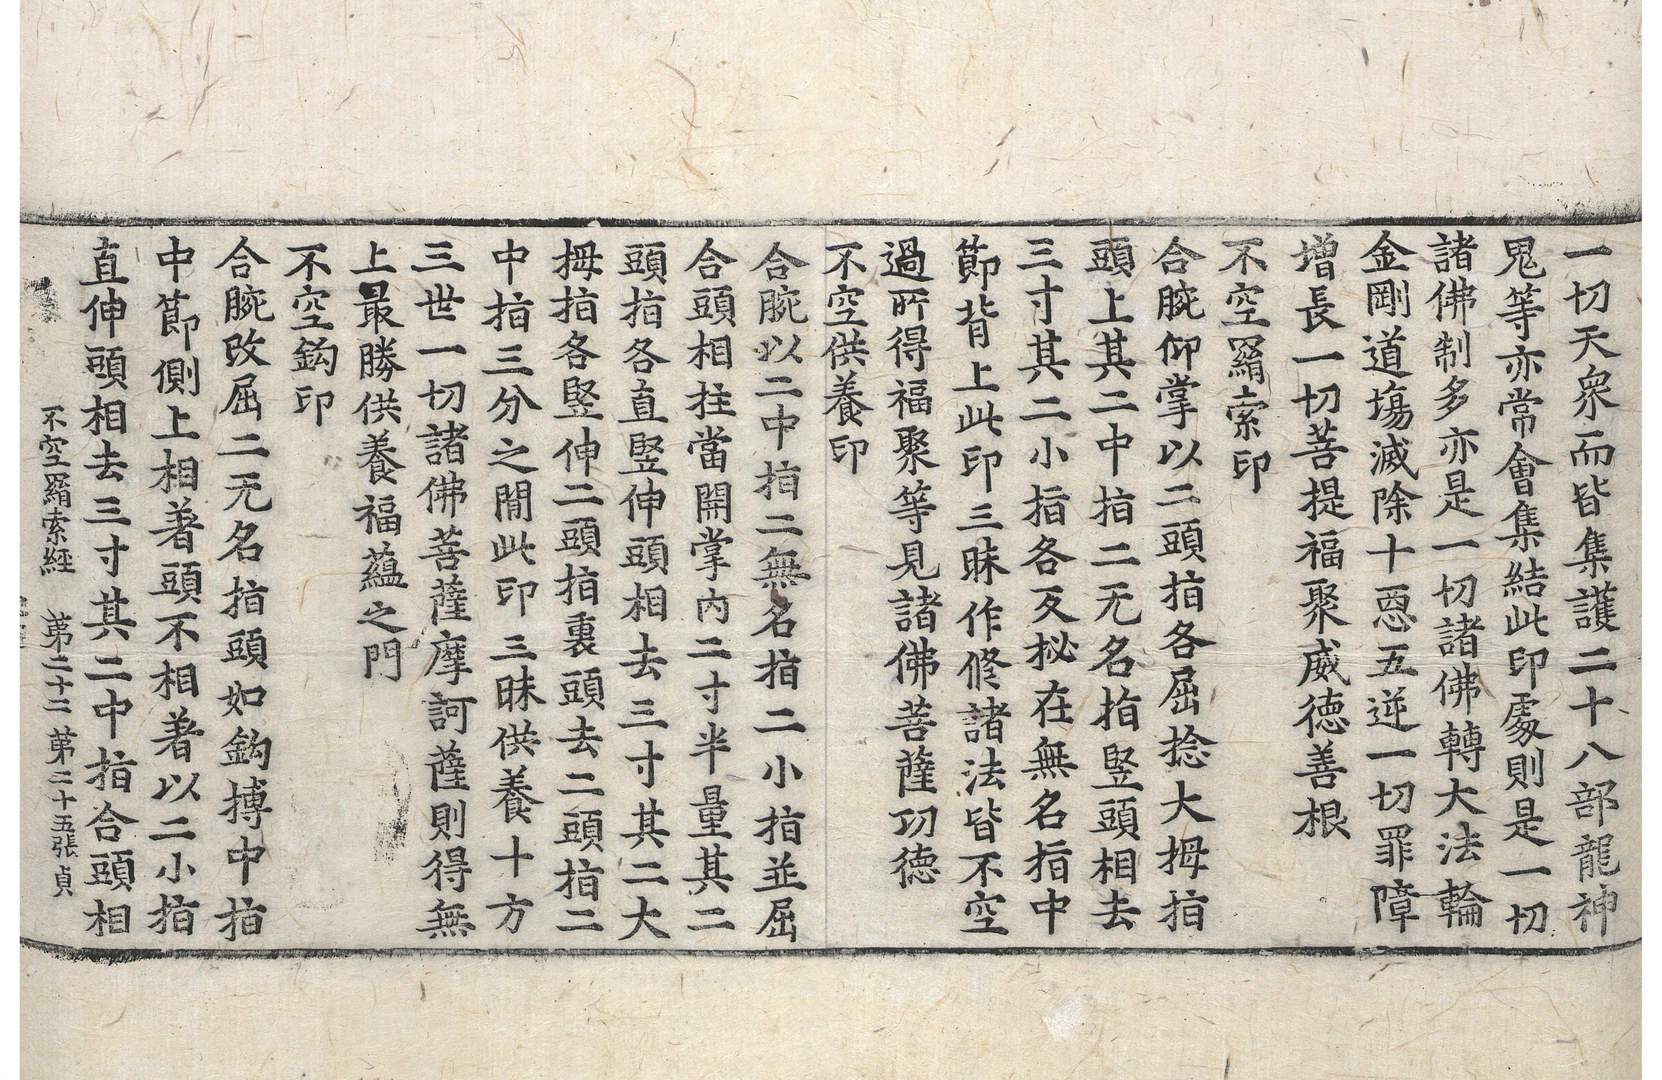 一切天衆而皆集護二十八部龍神
鬼等亦常會集結此印處則是一切
諸佛制多亦是一切諸佛轉大法輪
金剛道場滅除十惡五逆一切罪障
增長一切菩提福聚威德善根
不空羂索印
合腕仰掌以二頭指各屈捻大拇指
頭上其二中指二无名指竪頭相去
三寸其二小指各叉拟在無名指中
節背上此印三昧作修諸法皆不空
過所得福聚等見諸佛菩薩功德
不空供養印
合腕以二中指二無名指二小指並屈
合頭相拄當開掌內二寸半量其二
頭指各直竪伸頭相去三寸其二大
拇指各竪伸二頭指裏頭去二頭指二
中指三分之間此印三昧供養十方
三世一切諸佛菩薩摩訶薩則得無
上最勝供養福蘊之門
不空鈎印
合腕改屈二无名指頭如鈎搏中指
中節側上相著頭不相著以二小指
直伸頭相去三寸其二中指合頭相
不空羂索經 第二十二 第二十五張 貞